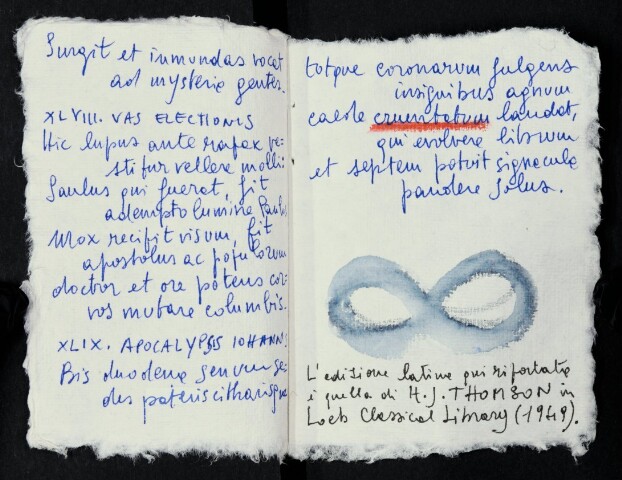 Surgit et inmundas vocat
ad mysteria gentes.
XLVIII. VAS ELECTIONIS
Hic lupus ante rapax ve=
stitur vellere molli:
Saulus qui fuerat, fit
adempto lumine Paulus
Mox recipit visum, fit
apostolus ac populorum
doctor et ore potens cor=
vos mutare columbis.
XLIX. APOCALYPSIS IOHANNIS
Bis duodena senum se=
des pateris citharisque
totque coronarum fulgens
insignibus agnum
caede cruentatum laudat,
qui evolvere librum
et septem potuit signacula
pandere solus.
L'edizione latina qui riportata
è quella di H. J. THOMSON in
Loeb Classical Library (1949).